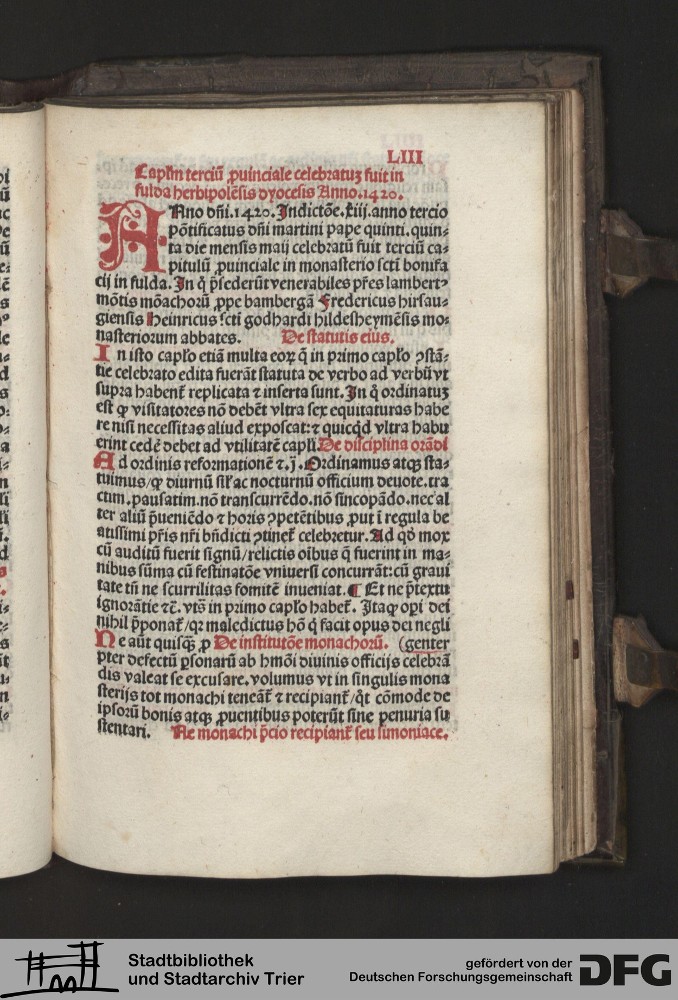 LIII
Caplm terciū ꝓuinciale celebratuꝫ fuit in
fulda herbipolēsis dyocesis Anno.1420.
ANno dn̄i.1420. Indictōe.xiij.anno tercio
pōtificatus dn̄i martini pape quinti.quin⸗
ta die mensis maij celebratū fuit terciū ca⸗
pitulū ꝓuinciale in monasterio scti bonifa
cij in fulda. In q̄ p̄sederūt venerabiles pr̄es lambertꝰ
mōtis mōachorū ꝓpe bambergā Fredericus hirsau⸗
giensis Heinricus scti godhardi hildesheymēsis mo⸗
nasteriorum abbates. De statutis eius.
In isto caplo etiā multa eoꝝ q̄ in primo caplo ꝯstā⸗
tie celebrato edita fuerāt statuta de verbo ad verbū vt
supra habent̄ replicata ⁊ inserta sunt. In q̄ ordinatuꝫ
est ꝙ visitatores nō debēt vltra sex equitaturas habe
re nisi necessitas aliud exposcat: ⁊ quicq̄d vltra habu
erint cedē debet ad vtilitatē capli. De disciplina orādi
Ad ordinis reformationē ⁊.j. Ordinamus atqꝫ sta⸗
tuimus/ꝙ diurnū sil'ac nocturnū officium deuote.tra
ctim.pausatim.nō transcurrēdo.nō sincopādo.nec al
ter aliū p̄ueniēdo ⁊ horis ꝯpetētibus ꝓut ī regula be
atissimi pr̄is nr̄i bn̄dicti ꝯtinet̄ celebretur. Ad qd̄ mox
cū auditū fuerit signū/relictis oībus q̄ fuerint in ma⸗
nibus sūma cū festinatōe vniuersi concurrāt:cū graui
tate tn̄ ne scurrilitas fomitē inueniat. ¶ Et ne p̄textu
ignorātie ⁊c̄. vts̄ in primo caplo habet̄. Itaqꝫ oꝑi dei
nihil p̄ponat̄/qꝛ maledictus hō q̄ facit opus dei negli
Ne aūt quisqꝫ ꝓ De institutōe monachorū. (genter
pter defectū ꝑsonarū ab hmōi diuinis officijs celebrā
dis valeat se excusare.volumus vt in singulis mona
sterijs tot monachi teneāt̄ ⁊ recipiant̄/qt̄ cōmode de
ipsorū bonis atqꝫ ꝓuentibus poterūt sine penuria su
stentari. Ne monachi p̄cio recipiant̄ seu simoniace.
Stadtbibliothek
und Stadtarchiv Trier
gefördert von der
Deutschen Forschungsgemeinschaft
DFG